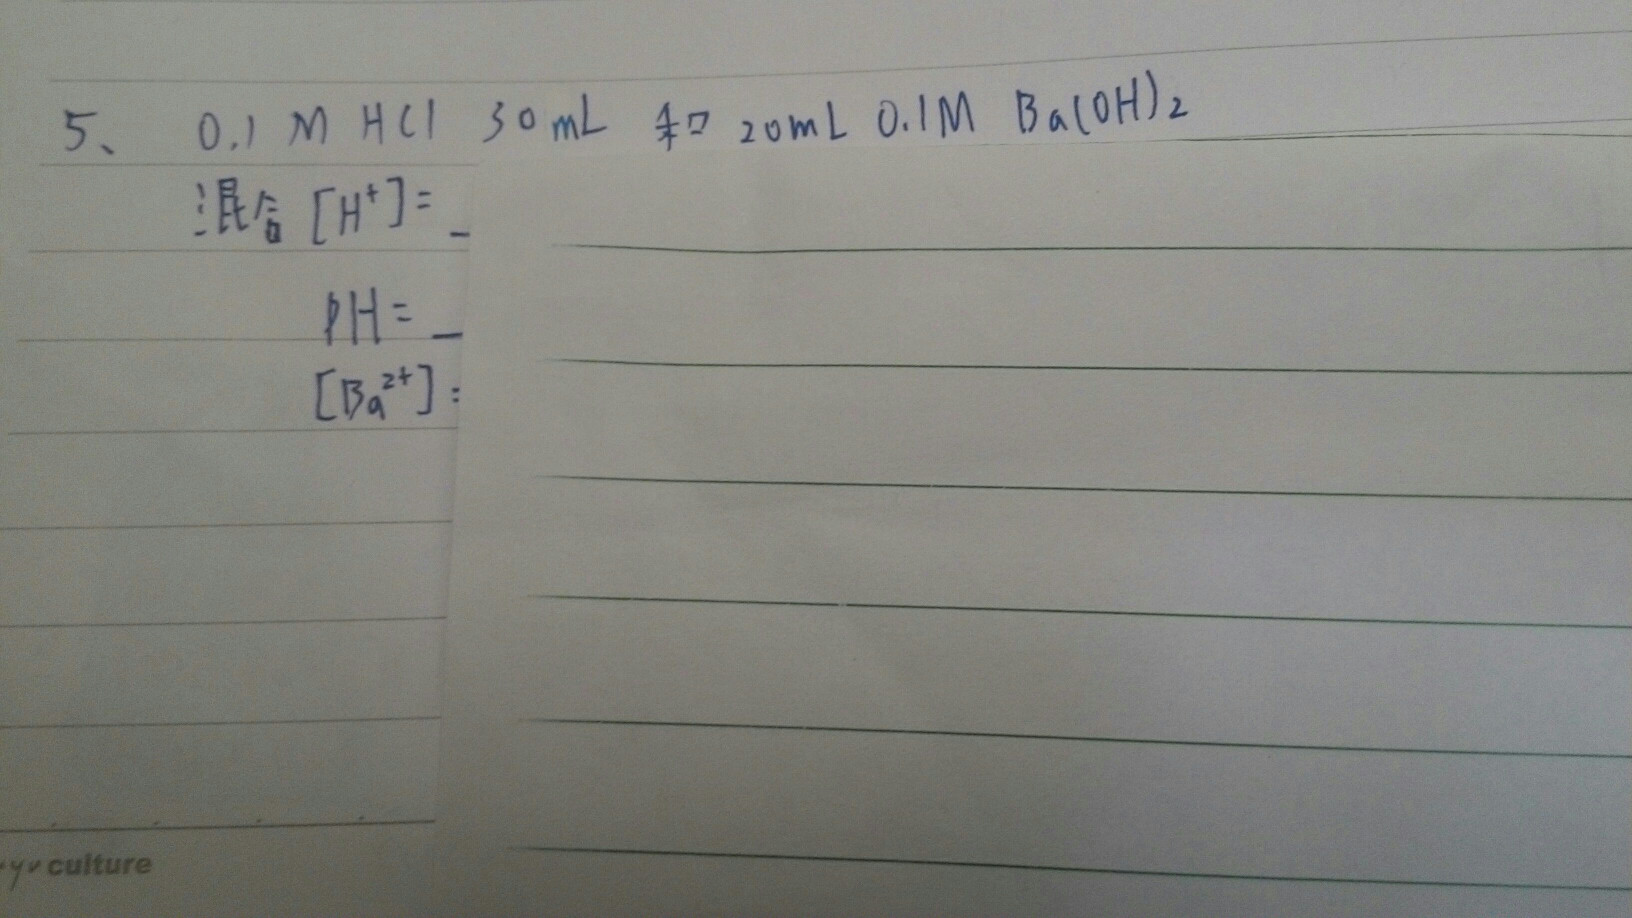 5、 0.1 M HCl 30mL 和 20mL 0.1M Ba(OH)2
混合 [H⁺]= _
PH= _
[Ba²⁺]:
culture